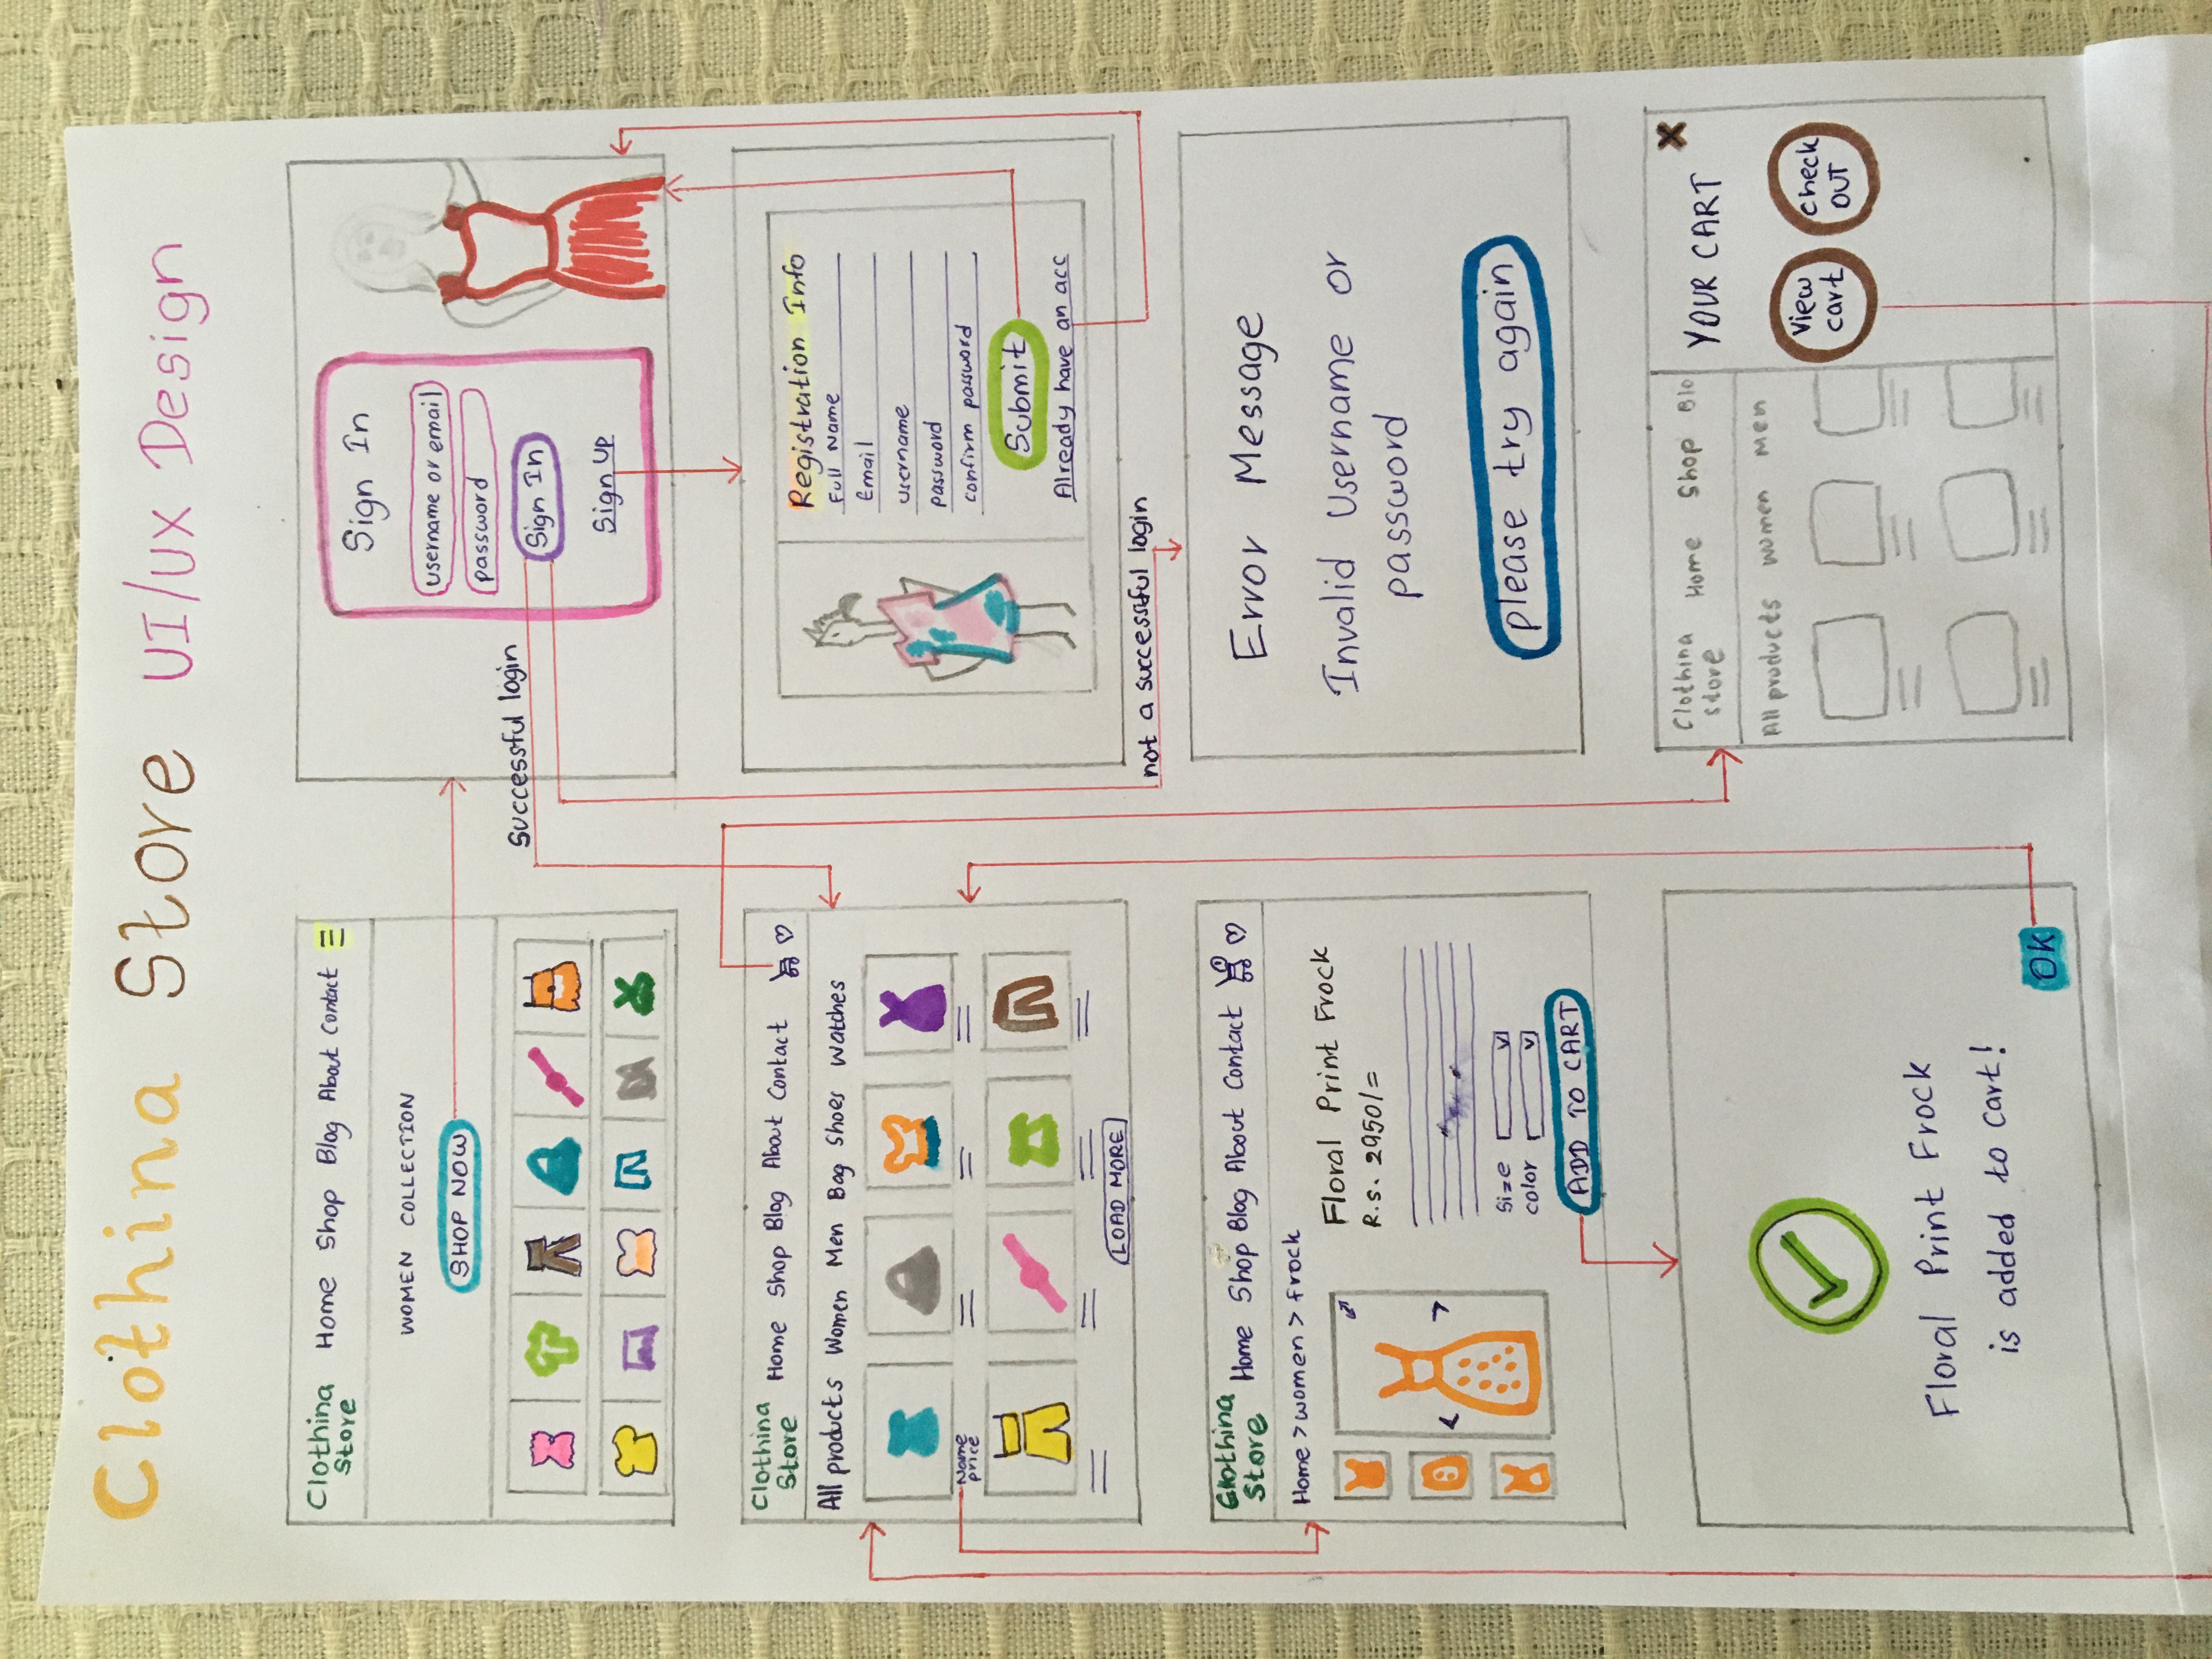 Clothina Store UI/UX Design
Clothina
Store
Home Shop Blog About Contact
WOMEN COLLECTION
SHOP NOW
Sign In
username or email
password
Sign In
Sign Up
Successful login
Clothina
Store
Home Shop Blog About Contact
All products Women Men Bag Shoes Watches
Name
price
LOAD MORE
Registration Info
Full Name
Email
username
password
confirm password
Submit
Already have an acc
not a successful login
Clothina
Store
Home Shop Blog About Contact
Home > women > frock
Floral Print Frock
R.s. 2950/=
Size
color
ADD TO CART
Error Message
Invalid Username or
password
please try again
Floral Print Frock
is added to cart!
OK
Clothina
Store
Home Shop Blo
All products Women Men
YOUR CART
X
View
cart
Check
OUT